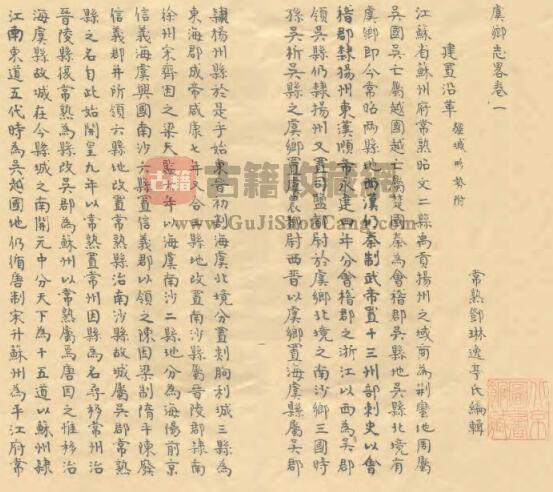 虞鄉志畧卷一
常熟鄧琳逸亭氏編輯
建置沿革 疆域形勢附
江蘇省蘇州府常熟昭文二縣禹貢揚州之域商為荆蠻地周屬
吳國吳亡屬越國越亡屬楚國秦為會稽郡吳縣地吳縣北境有
虞鄉即今常昭两縣地西漢仍秦制武帝置十三州部刺史以會
稽郡隸揚州東漢順帝永建四年分會稽郡之浙江以西為吳郡
領吳縣仍隸揚州又置司鹽都尉於虞鄉北境之南沙鄉三國時
孫吳析吳縣之虞鄉置農都尉西晋以虞鄉置海虞縣屬吳郡
隸揚州縣於是乎始東晉初割海虞北境分置剡朐利城三縣為
東海郡成帝咸康七年又合縣地改置南沙縣屬晉陵郡隸南
徐州宋齊因之梁天監年以海虞南沙二縣地分為海陽前京
信義海虞興國南沙六縣置信義郡以領之陳因梁制隋平陳廢
信義郡并所領六縣地改置常熟縣治南沙縣故城屬吳郡常熟
縣之名自此始開皇九年以常熟置常州因縣為名尋移常州治
晉陵縣復常熟為縣改吳郡為蘇州以常熟屬焉唐因之惟移治
海虞縣故城在今縣城之南開元中分天下為十五道以蘇州隸
江南東道五代時為吳越國地仍循唐制宋升蘇州為平江府常
古籍收藏网
www.GuJiShouCang.com
古籍
北京圖書館藏